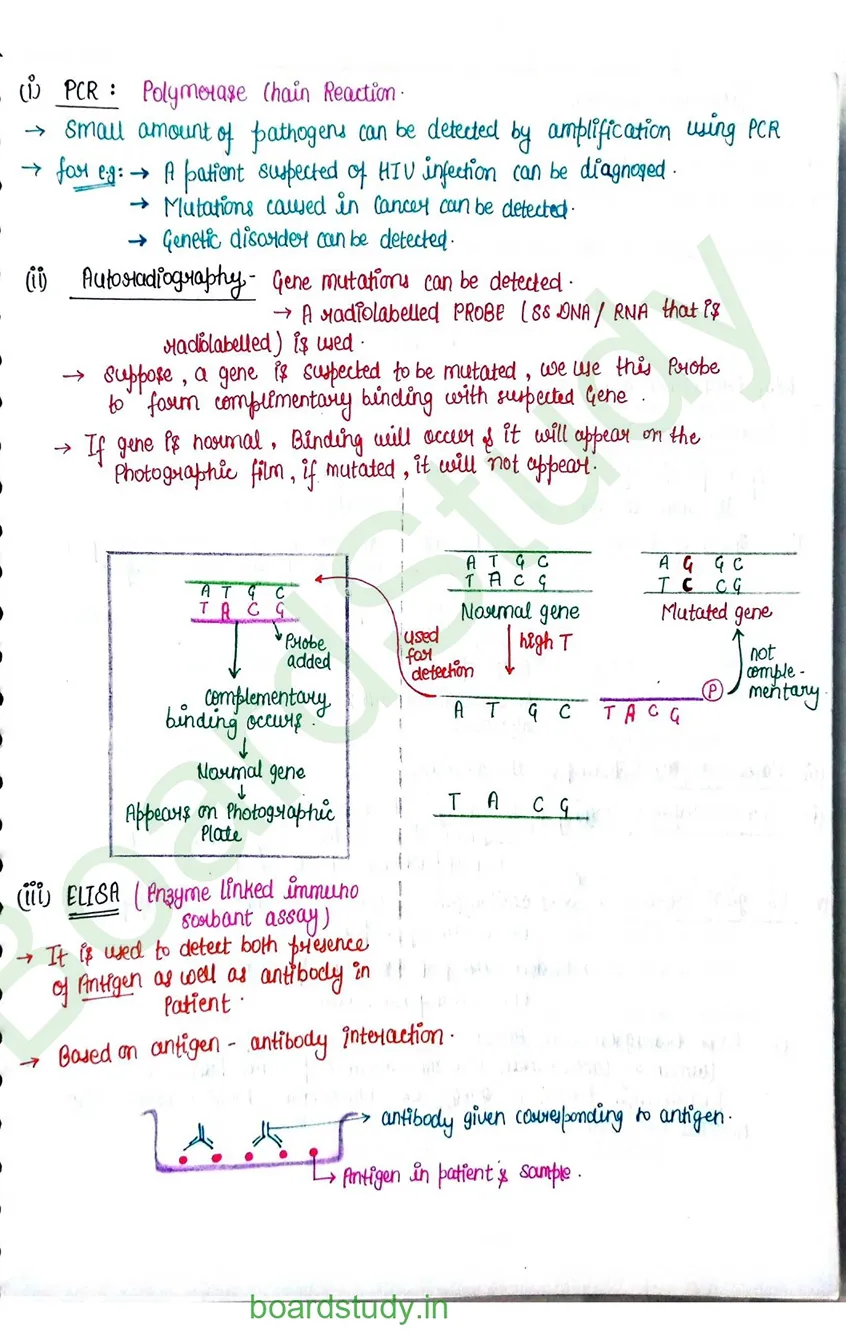 (i) PCR : Polymerase Chain Reaction.
→ Small amount of pathogens can be detected by amplification using PCR
→ for e.g: → A patient suspected of HIV infection can be diagnosed.
→ Mutations caused in Cancer can be detected.
→ Genetic disorder can be detected.
(ii) Autoradiography - Gene mutations can be detected.
→ A radiolabelled PROBE (SS DNA / RNA that is
radiolabelled) is used.
→ Suppose, a gene is suspected to be mutated, we use this Probe
to form complimentary binding with suspected Gene.
→ If gene is normal, Binding will occur & it will appear on the
Photographic film, if mutated, it will not appear.
A T G C
T A C G
Probe
added
Complementary
binding occurs.
↓
Normal gene
↓
Appears on Photographic
Plate
A T G C
T A C G
Normal gene
high T
used
for
detection
A G G C
T C C G
Mutated gene
not
comple-
mentary.
A T G C
T A C G
P
T A C G
(iii) ELISA (Enzyme linked immuno
sorbant assay)
→ It is used to detect both presence
of Antigen as well as antibody in
Patient.
→ Based on antigen - antibody interaction.
→ antibody given corresponding to antigen.
→ Antigen in patient's sample.
BoardStudy
boardstudy.in